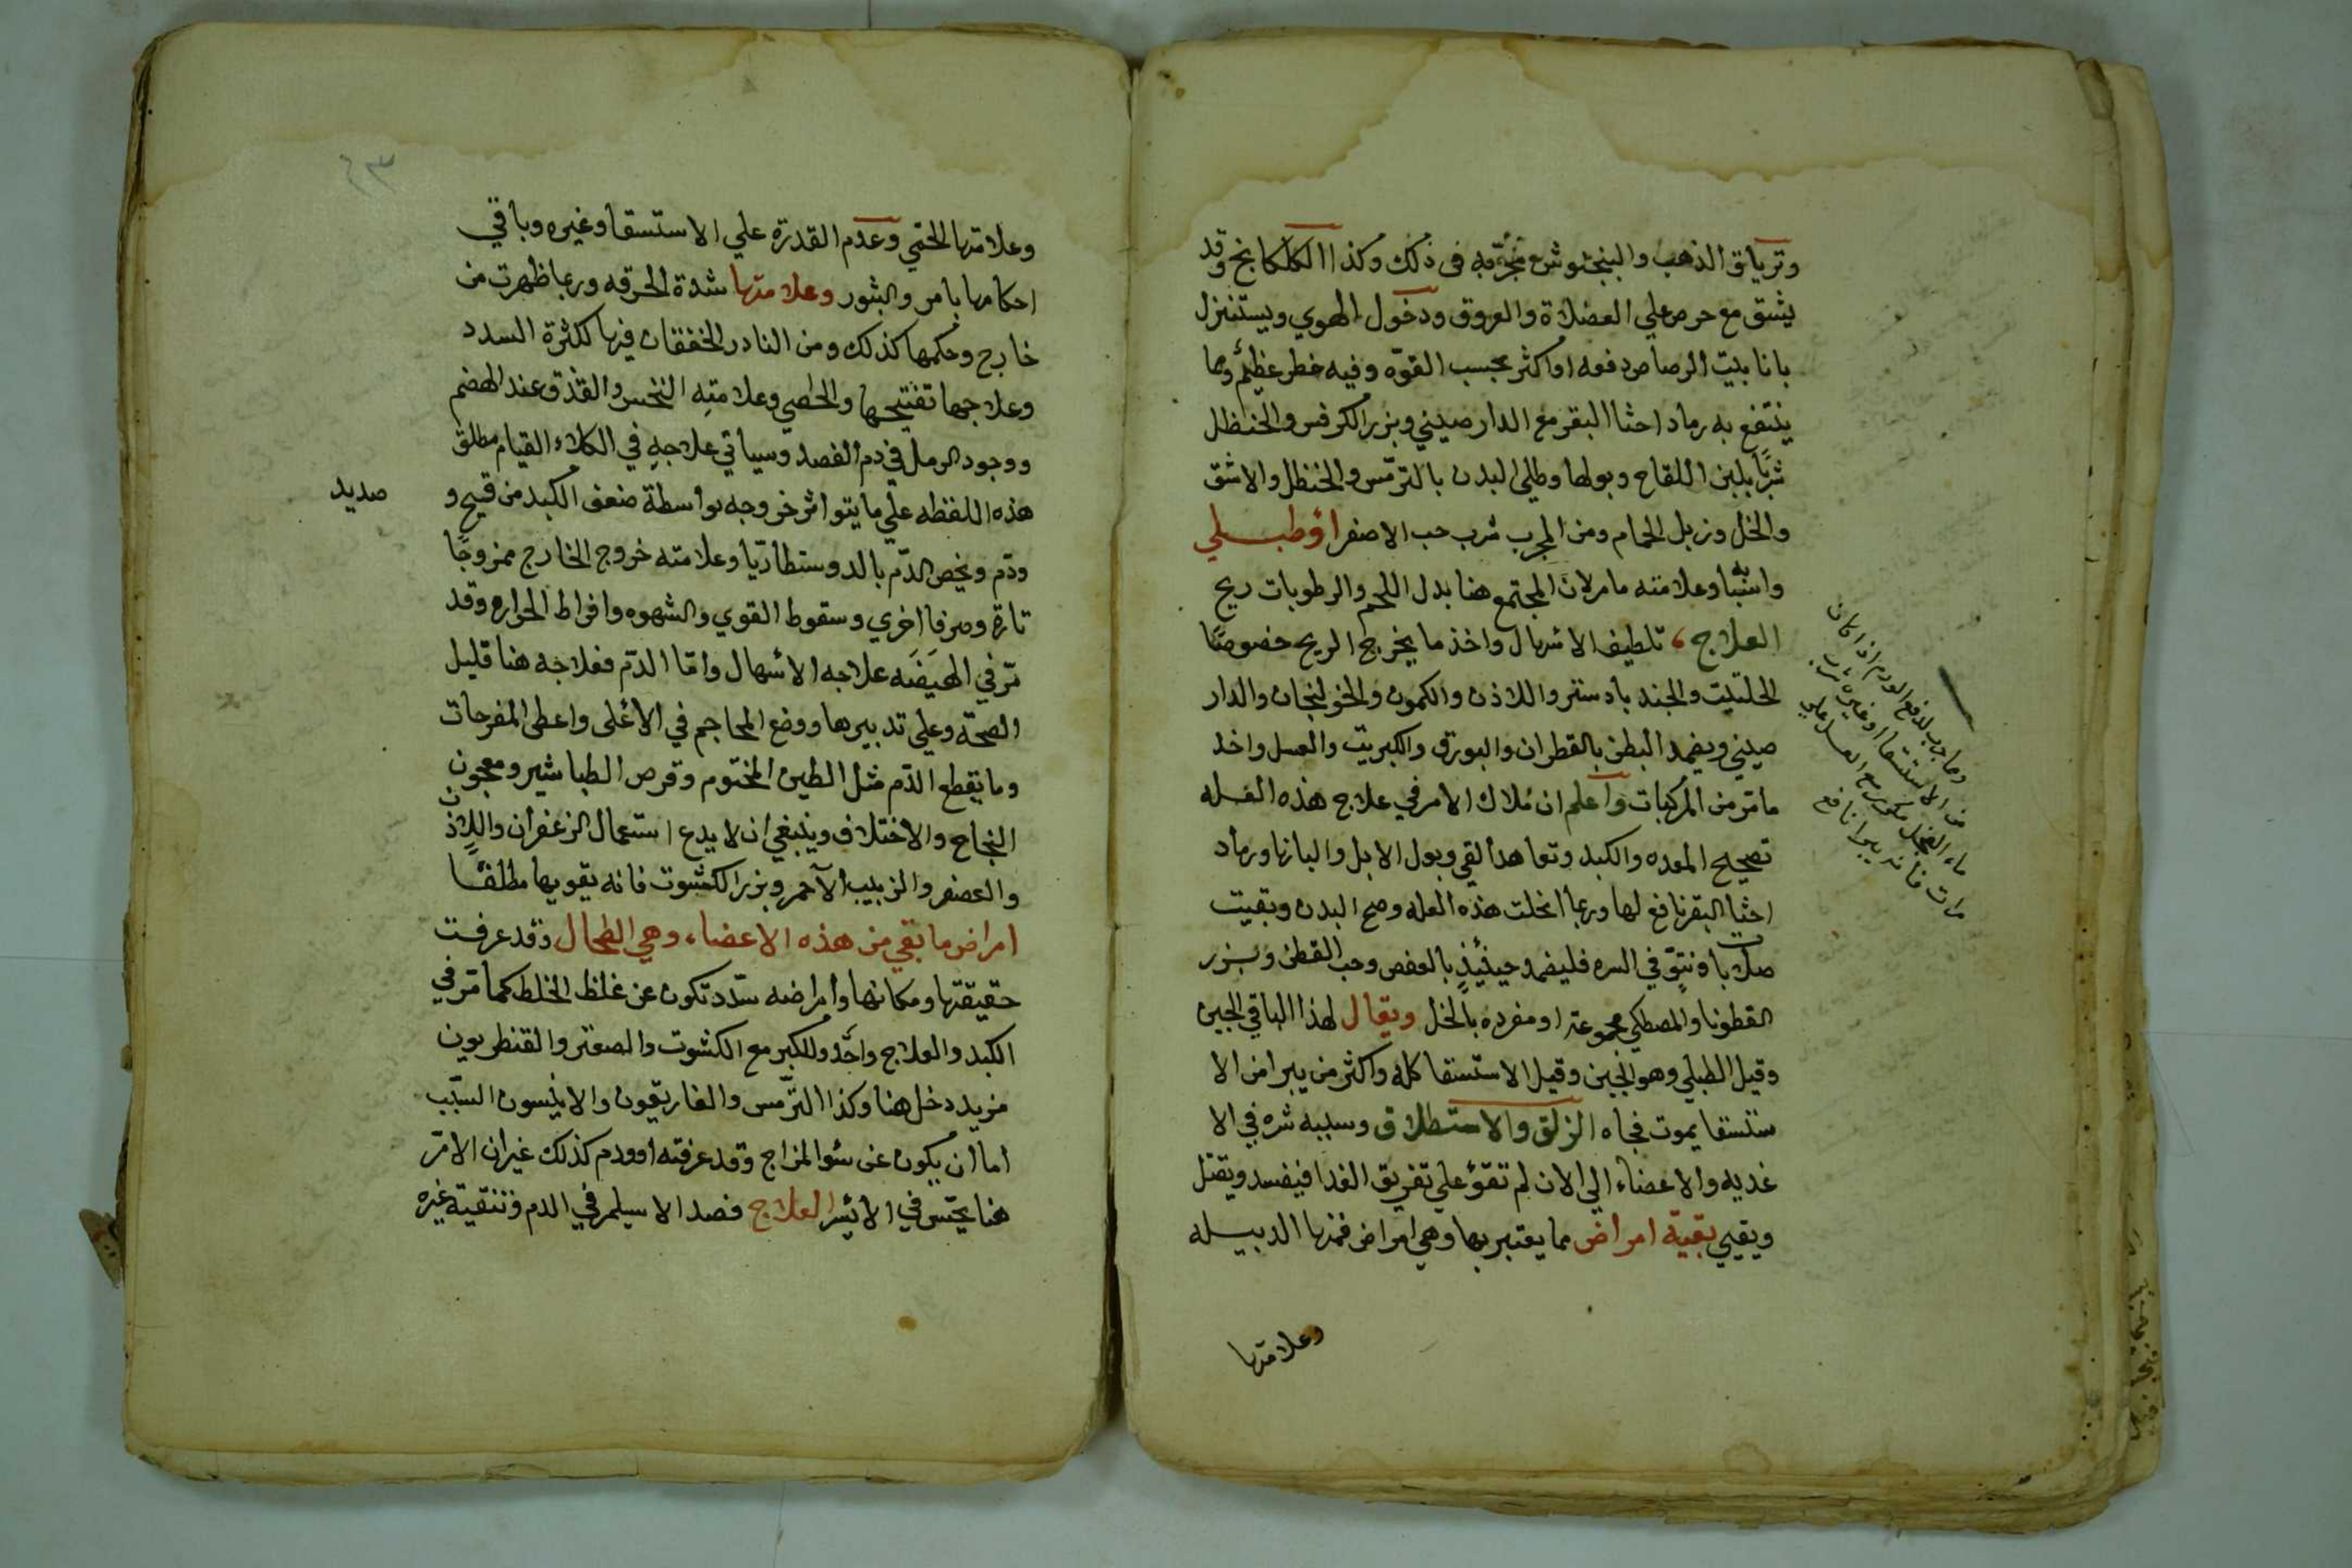 وترياق الذهب والبنجنوش مجربه في ذلك وكذا الكلكلانج وقد
يشق مع حرص علي العضلاة والعروق ودخول الهوي ويستنزل
بانابيت الرصاص دفعه او اكثر بحسب القوّه وفيه خطر عظيم وما
ينتفع به رماد احثا البقر مع الدارصيني وبزر الكرفس والحنظل
شربًا بلبن اللقاح وبولها وطلي البدن بالترمّس والحنظل والاشق
والخل وزبل الحمام ومن المجرب شرب حب الاصفر اوطبلي
وعلامته ما مر لان المجتمع هنا بدل اللحم والرطوبات ريح
العلاج تلطيف الاسهال واخذ ما يخرج الريح خصوصًا
الحلتيت والجند بادستر واللاذن والكمون والخولنجان والدار
صيني ويضمد البطن بالقطران والبورق والكبريت والعسل واخذ
ما مرّ من المركبات واعلم ان ملاك الامر في علاج هذه العله
تصحيح المعده والكبد وتعاهد القي وبول الابل والبانها ورماد
احثا البقر نافع لها وربما انحلت هذه العله وصح البدن وبقيت
صلابات ونتوّ في السره فليضمد حينئذٍ بالعفص وحب القطن وبزر
القطونا والمصطكي مجموعة او مفرده بالخل ويقال لهذا الباقي الجبن
وقيل الطبلي وهو الجبن وقيل الاستسقا كله واكثر من يبرا من الا
ستسقا يموت فجاه الزلق والاستطلاق وسببه شره في الا
غذيه والاعضاء الي الان لم تقوَ علي تفريق الغذا فيفسد ويقتل
وبقيي بقية امراض مما يعتبر بها وهي امراض فمنها الدبيله
وعلامتها
وما جرب لدفع الورم اذا كان
من الاستسقا او غيره شرب
ماء الفجل مكرر مع العسل علي
مرات فانه يبرا نافع
٦٣
وعلامتها الحمّي وعدم القدرة علي الاستسقا وغيره وباقي
احكامها بامر والبثور وعلامتها شدة الحرقه وربما ظهرت من
خارج وحكمها كذلك ومن النادر الخفقان فيها لكثرة السدد
وعلاجها تفتيحها والحصي وعلامته النخس والقذف عند الهضم
ووجود الرمل في دم الفصد وسياتي علاجه في الكلاء القيام مطلق
هذه اللفظه علي ما يتواثر خروجه بواسطة ضعف الكبد من قيح و
صديد
ودّم ويخص الدّم بالدوسنطاريّا وعلامته خروج الخارج ممزوجًا
تارة وصرفا اخري وسقوط القوي والشهوه وافراط الحراره وقد
مرّ في الهيضَه علاجه الاسهال وامّا الدّم فعلاجه هنا قليل
الصحّه وعلي تدبيرها ووضع المحاجم في الاعلى واعطى المفرحات
وما يقطع الدّم مثل الطين المختوم وقرص الطباشير ومعجون
النجاح والاختلاف وينبغي ان لا يدع استعمال الزعفران واللاذن
والعصفر والزبيب الاحمر وبزر الكشوت فانه يقويها مطلقًا
امراض ما بقي من هذه الاعضاء وهي الطحال وقد عرفت
حقيقتها ومكانها وامراضه سدّد تكون عن غلظ الخلط كما مرّ في
الكبد والعلاج واحد وللكبر مع الكشوت والصعتر والقنطريون
مزيد دخل هنا وكذا الترمّس والغاريقون والانيسون السبّب
اما ان يكون عن سؤ المزاج وقد عرفته او ورم كذلك غير ان الامرّ
هنا يحسّ في الايسر العلاج فصد الاسيلم في الدم وتنقية غيره